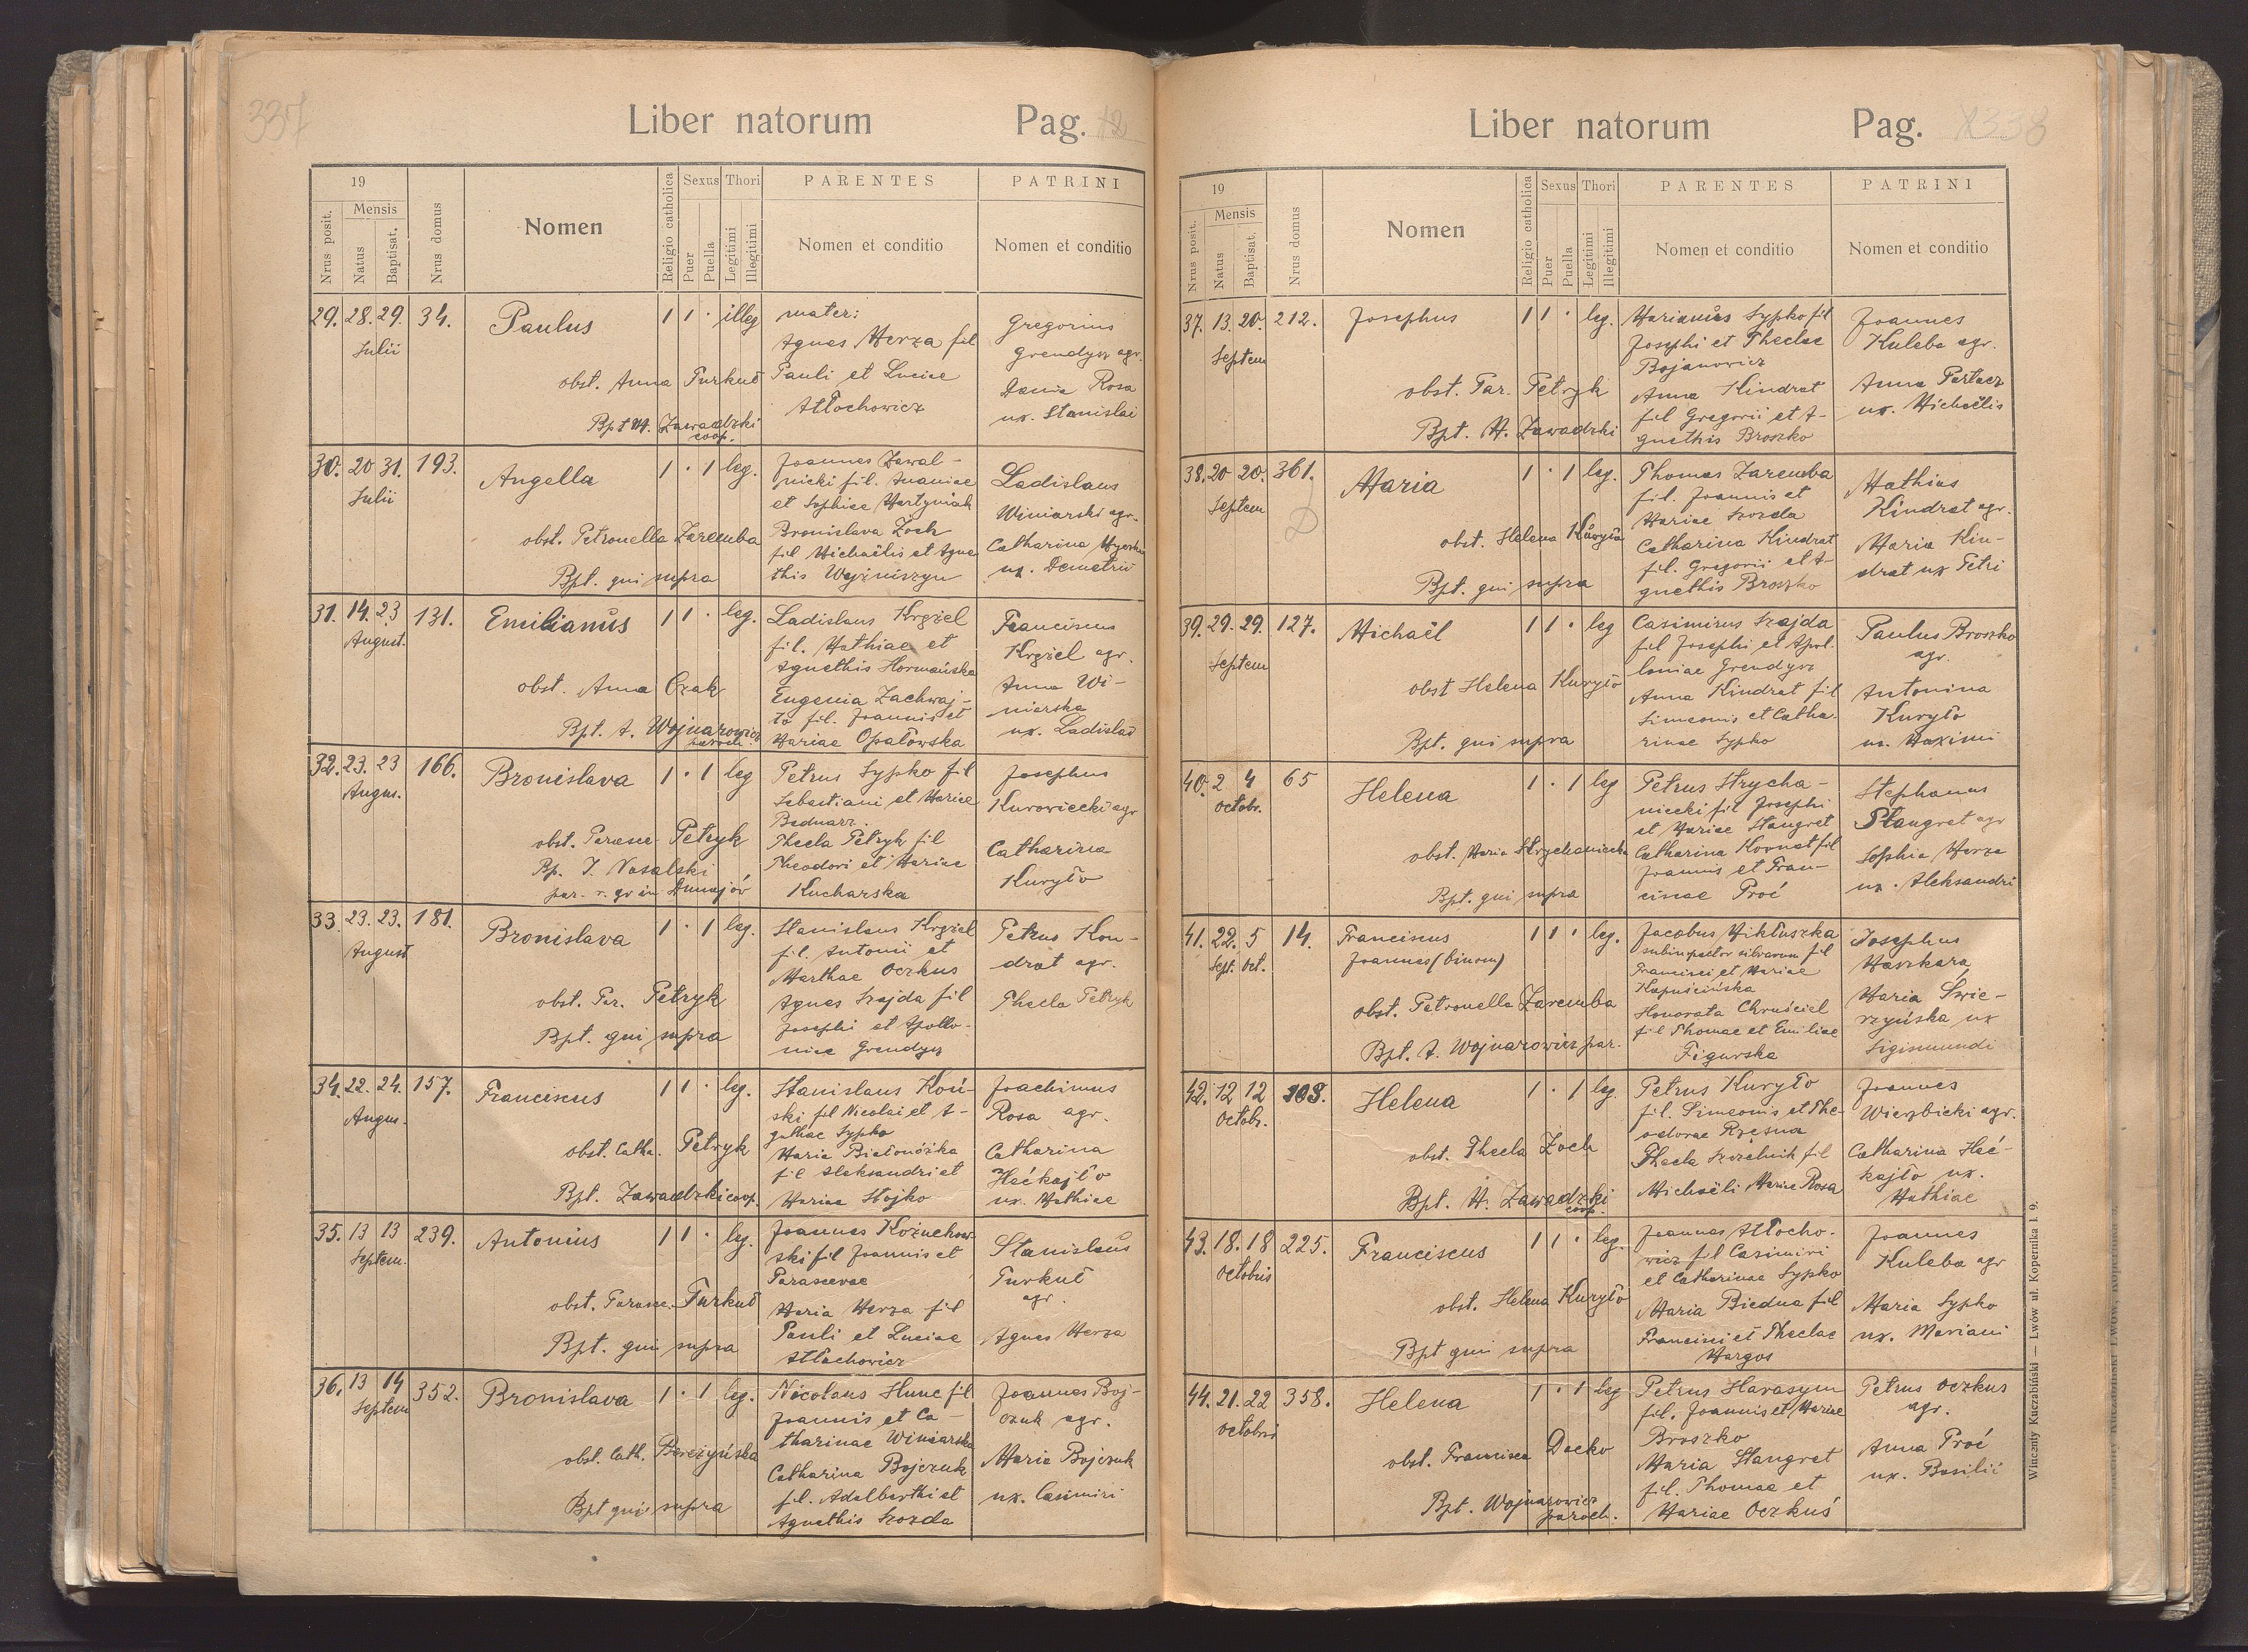 337
Liber natorum Pag. 42
19
Nrus posit.
Mensis
Natus
Baptisat.
Nrus domus
Nomen
Religio catholica
Sexus
Puer
Puella
Thori
Legitimi
Illegitimi
PARENTES
Nomen et conditio
PATRINI
Nomen et conditio
29. 28. 29. 34.
Julii
Paulus
1 1 · illeg
obst. Anna Turkuł
Bpt M. Zawadzki
coop.
mater:
Agnes Merza fil
Pauli et Luciae
Attochowicz
Gregorius
Grendysz agr.
Rosa
ux. Stanislai
30. 20 31. 193.
Julii
Angella
1 · 1 leg.
obst. Petronella Zaremba
Bpt. qui supra
Joannes Zawal-
nicki fil. Ananiae
et Sophiae Martyniak
Bronislava Zoch
fil Michaëlis et Agne
this Woźniszyn
Ladislaus
Winiarski agr.
Catharina
ux. Demetrii
31. 14. 23. 131.
August.
Emilianus
1 1 · leg.
obst. Anna Czak
Bpt. A. Wojnarowicz
paroch.
Ladislaus Krgziel
fil. Mathiae et
Agnethis Hormańska
Eugenia Zachwaj-
ło fil. Joannis et
Mariae Opałowska
Franciscus
Krgziel agr.
Anna Wi-
niarska
ux. Ladislai
32. 23. 23 166.
Augus.
Bronislava
1 · 1 leg
obst. Parasce. Petryk
Bp. J. Nasalski
par. r. gr in Dunajów
Petrus Sypko fil
Sebastiani et Mariae
Bednarz.
Thecla Petryk fil
Theodori et Mariae
Kucharska
Josephus
Kurowiecki agr
Catharina
Kuryło
33. 23. 23. 181.
August
Bronislava
1 · 1 leg.
obst. Par. Petryk
Bpt. qui supra
Stanislaus Krgziel
fil. Antonii et
Marthae Oczkus
Agnes Szajda fil
Josephi et Apollo-
niae Grendysz
Petrus Kon-
drat agr.
Thecla Petryk
34. 22. 24. 157.
Augus.
Franciscus
1 1 · leg.
obst. Catha. Petryk
Bpt. Zawadzki coop.
Stanislaus Koń-
ski fil Nicolai et A-
gathae Sypko
Maria Białonóżka
fil Aleksandri et
Mariae Stojko
Joachimus
Rosa agr.
Catharina
Hećkajło
ux. Mathiae
35. 13 13 239.
Septem.
Antonius
1 1 · leg.
obst. Parasce. Turkuł
Bpt. qui supra
Joannes Kożuchow-
ski fil Joannis et
Parascevae
Maria Merza fil
Pauli et Luciae
Attochowicz
Stanislaus
Turkuł
agr.
Agnes Merza
36. 13 14 352.
Septem
Bronislava
1 · 1 leg.
obst. Cath. Borczyńska
Bpt qui supra
Nicolaus Hunc fil
Joannis et Ca-
tharinae Winiarska
Catharina Bojczuk
fil. Adalberthi et
Agnethis Szozda
Joannes Boj-
czuk agr.
Maria Bojczuk
ux. Casimiri
338
Liber natorum Pag.
19
Nrus posit.
Mensis
Natus
Baptisat.
Nrus domus
Nomen
Religio catholica
Sexus
Puer
Puella
Thori
Legitimi
Illegitimi
PARENTES
Nomen et conditio
PATRINI
Nomen et conditio
37. 13. 20. 212.
Septem
Josephus
1 1 · leg.
obst. Par. Petryk
Bpt. M. Zawadzki
Marianus Sypko fil
Josephi et Theclae
Bojanowicz
Anna Kindrat
fil Gregorii et A-
gnethis Broszko
Joannes
Kuleba agr.
Anna Partacz
ux. Michaëlis
38. 20 20. 361.
Septem
Maria
1 · 1 leg.
obst. Helena Kuryło
Bpt. qui supra
Thomas Zaremba
fil. Joannis et
Mariae Szozda
Catharina Kindrat
fil. Gregorii et A-
gnethis Broszko
Mathias
Kindrat agr.
Maria Kin-
drat ux Petri
39. 29. 29. 127.
Septem
Michaël
1 1 · leg
obst Helena Kuryło
Bpt. qui supra
Casimirus Szajda
fil Josephi et Apol-
loniae Grendysz
Anna Kindrat fil
Simeonis et Catha-
rinae Sypko
Paulus Broszko
agr.
Antonina
Kuryło
ux. Maximi
40. 2 4 65
octobr.
Helena
1 · 1 leg
obst. Maria Strychaniecka
Bpt. qui supra
Petrus Strycha-
niecki fil Josephi
et Mariae Stangret
Catharina Kornat fil
Joannis et Fran-
ciscae Proć
Stephanus
Stangret agr
Sophia Merza
ux. Aleksandri
41. 22. 5 14.
Sept. Oct.
Franciscus
Joannes (binom)
1 1 · leg.
obst. Petronella Zaremba
Bpt. A. Wojnarowicz par.
Jacobus Mikłuszka
subinspektor silvarum fil
Francisci et Mariae
Kapuścińska
Honorata Chruściel
fil Thomae et Emiliae
Figurska
Josephus
Maszkara
Maria Świe-
rzyńska ux
Sigismundi
42. 12 12 108.
Octobr.
Helena
1 · 1 leg.
obst. Thecla Zoch
Bpt. M. Zawadzki
coop.
Petrus Kuryło
fil. Simeonis et The-
odorae Rzęsna
Thecla Szczelnik fil
Michaëli Mariae Rosa
Joannes
Wierzbicki agr.
Catharina Heć-
kajło ux.
Mathiae
43. 18. 18 225.
octobris
Franciscus
1 1 · leg.
obst. Helena Kuryło
Bpt qui supra
Joannes Attocho-
wicz fil Casimiri
et Catharinae Sypko
Maria Biedna fil
Francisci et Theclae
Margos
Joannes
Kuleba agr
Maria Sypko
ux. Mariani
44. 21. 22 358.
octobris
Helena
1 · 1 leg
obst. Francisca Decko
Bpt. Wojnarowicz
paroch.
Petrus Harasym
fil. Joannis et Mariae
Broszko
Maria Stangret
fil. Thomae et
Mariae Oczkuś
Petrus Oczkus
agr.
Anna Proć
ux. Basilii
Wincenty Kuczabiński — Lwów ul. Kopernika l. 9.